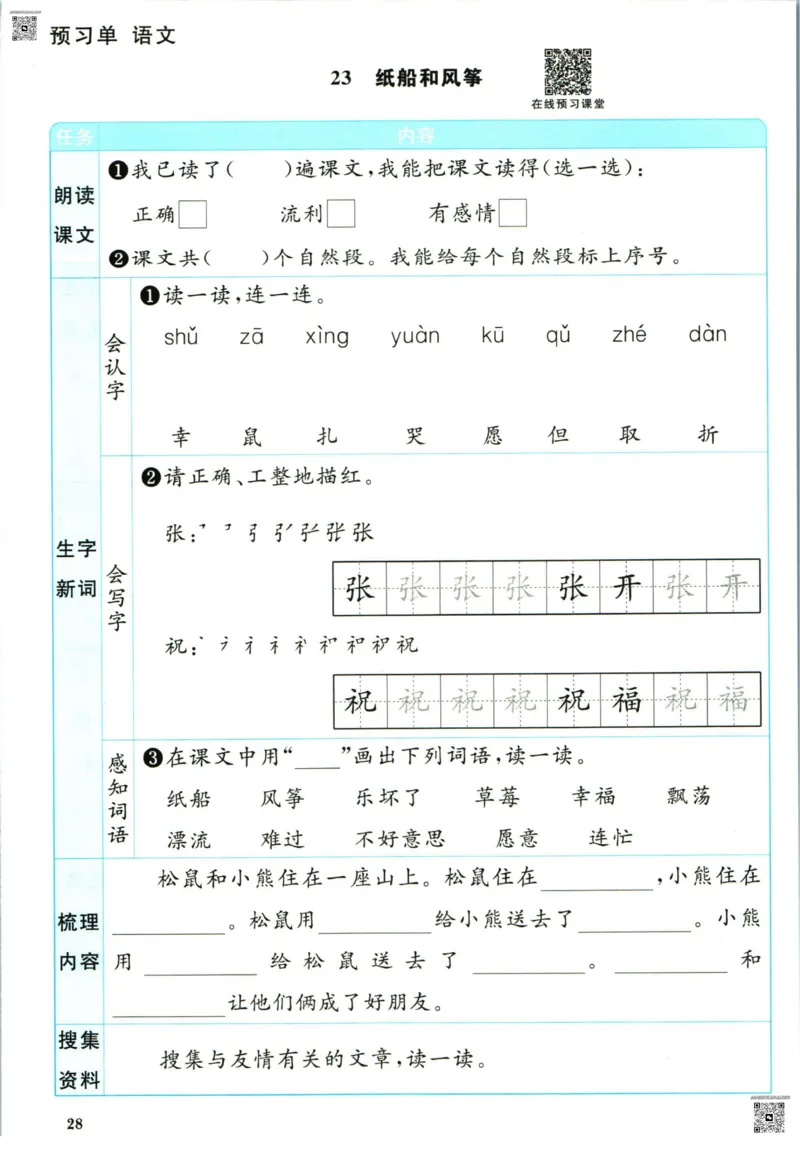 预习单 语文
23 纸船和风筝
在线预习课堂
任务 内容
朗读课文
❶我已读了( )遍课文,我能把课文读得(选一选):
正确□ 流利□ 有感情□
❷课文共( )个自然段。我能给每个自然段标上序号。
生字新词
会认字
❶读一读,连一连。
shǔ zā xìng yuàn kū qǔ zhé dàn
幸 鼠 扎 哭 愿 但 取 折
会写字
❷请正确、工整地描红。
张:
张 张 张 张 张 开 张 开
祝:
祝 祝 祝 祝 祝 福 祝 福
感知词语
❸在课文中用“____”画出下列词语,读一读。
纸船 风筝 乐坏了 草莓 幸福 飘荡
漂流 难过 不好意思 愿意 连忙
梳理内容
松鼠和小熊住在一座山上。松鼠住在__________,小熊住在
__________。松鼠用__________给小熊送去了__________。小熊
用__________给松鼠送去了__________。__________和
__________让他们俩成了好朋友。
搜集资料
搜集与友情有关的文章,读一读。
28